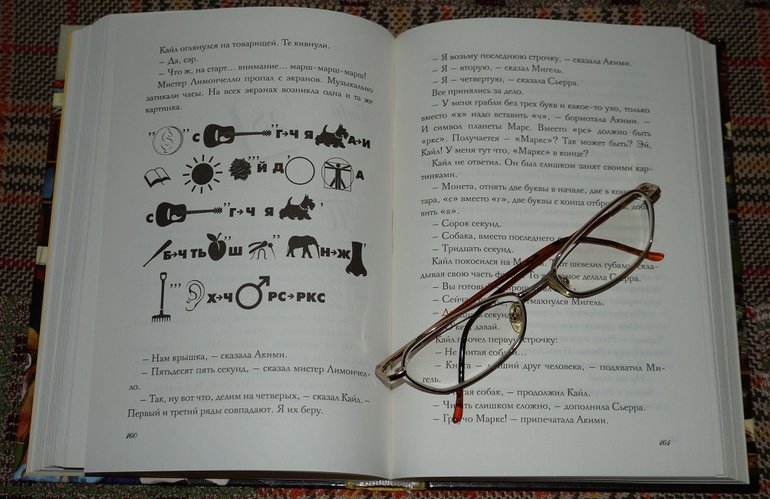 Кайл оглянулся на товарищей. Те кивнули.
– Да, сэр.
– Что ж, на старт… внимание… марш-марш-марш!
Мистер Лимончелло пропал с экранов. Музыкально
затикали часы. На всех экранах возникла одна и та же
картинка.
’’ с г→ч я А→И
’’’ й д а
с г→ч я ’
б→ч ть ’ш ’’ н→ж ’
’’’ х→ч рс→ркс
– Нам крышка, – сказала Акими.
– Пятьдесят пять секунд, – сказал мистер Лимончел-
ло.
– Так, ну вот что, делим на четверых, – сказал Кайл. –
Первый и третий ряды совпадают. Я их беру.
160
– Я возьму последнюю строчку, – сказала Акими.
– Я – вторую, – сказал Мигель.
– Я – четвертую, – сказала Сьерра.
Все принялись за дело.
– У меня грабли без трех букв и какое-то ухо, только
вместо «х» надо вставить «ч», – бормотала Акими. –
И символ планеты Марс. Вместо «рс» должно быть
«ркс». Получается – «Маркс»? Так может быть? Эй,
Кайл! У меня тут что, «Маркс» в конце?
Кайл не ответил. Он был слишком занят своими кар-
тинками.
– Монета, отнять две буквы в начале, две в кон
тара, «с» вместо «г», две буквы с конца отбро
вить «я».
– Сорок секунд.
– Собака, вместо последнего
– Тридцать секунд.
Кайл покосился на М шевелил губами, скла-
дывая свою часть фр То же самое делала Сьерра.
– Вы готовы
– Сейча махнулся Мигель.
секунд
давай.
Кайл прочел первую строчку:
– Не считая собаки…
– Книга – друг человека, – подхватил Ми-
гель.
собак, – продолжил Кайл.
– Читать слишком сложно, – дополнила Сьерра.
– Граучо Маркс! – припечатала Акими.
161